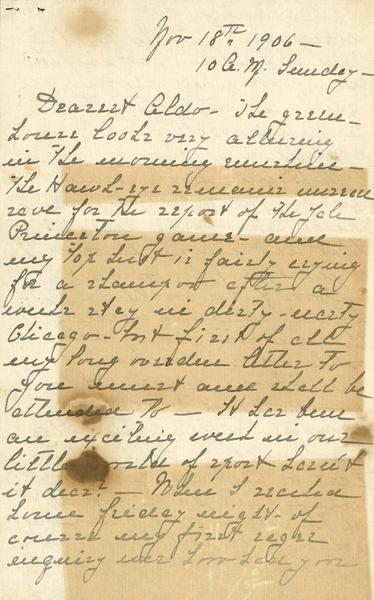 Nov 18th 1906 -
10 A.M. Sunday -
Dearest Aldo - The green-
house looks very alluring
in the morning sunshine -
The Hawk-eye remains
for the report of the Yale
Princeton game - and
my top knot is fairly crying
for a shampoo after a
week's stay in dirty - nasty
Chicago - but first of all
my long overdue letter to
you must and shall be
attended to - It has been
an exciting week in our
little world of sport hasn't
it dear? - When I reached
home friday night - of
course my first eager
inquiry was how had you